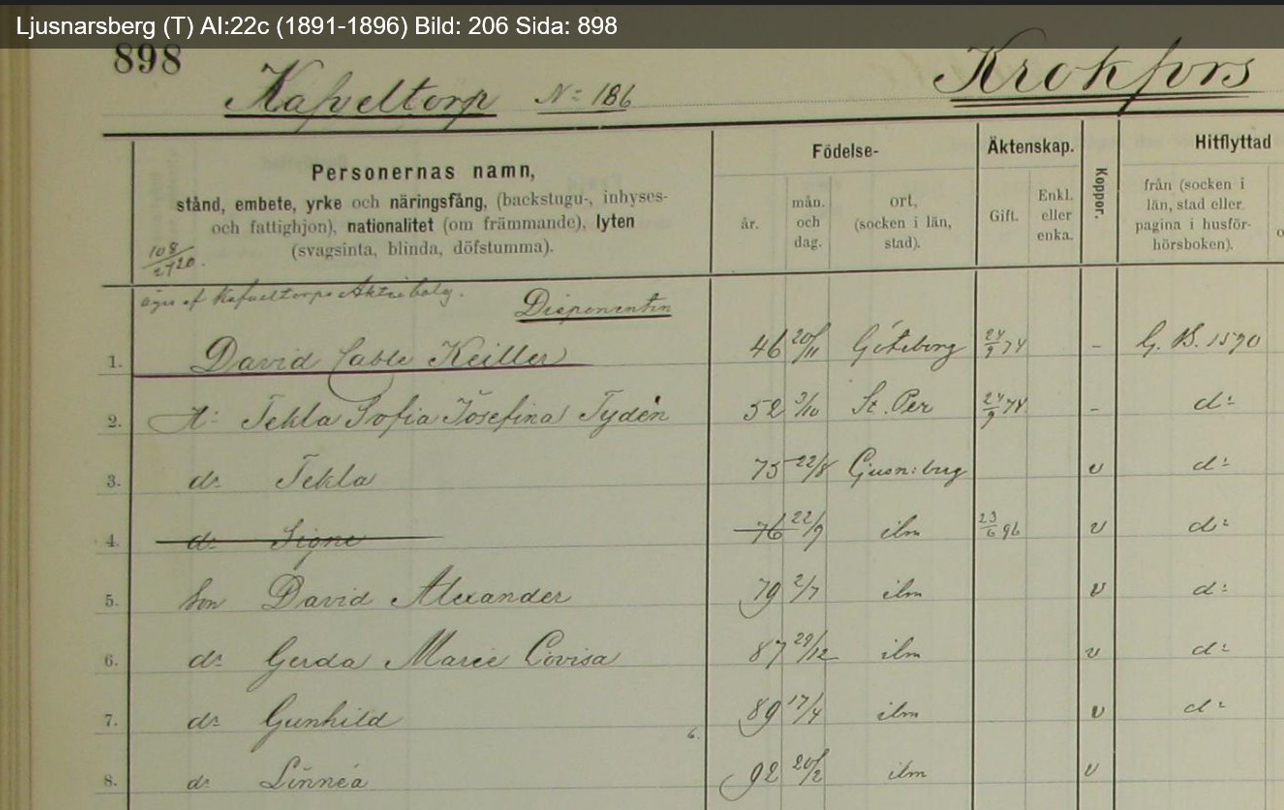 Ljusnarsberg (T) AI:22c (1891-1896) Bild: 206 Sida: 898
898
Kafveltorp No 186
Krokfors
Personernas namn,
stånd, embete, yrke och näringsfång, (backstugu-, inhyses-
och fattighjon), nationalitet (om främmande), lyten
(svagsinta, blinda, döfstumma).
108/2720.
Födelse-
år.
mån. och dag.
ort, (socken i län, stad).
Äktenskap.
Gift.
Enkl. eller enka.
Koppor.
Hitflyttad
från (socken i län, stad eller pagina i husför-hörsboken).
äges af Kafveltorps Aktiebolag.
Disponenten
1. David Cable Keiller 46 20/11 Göteborg 24/9 74 - G. B. 1590
2. H: Tekla Sofia Josefina Tydén 52 3/10 St. Per 24/9 74 - d:
3. dr Tekla 75 22/8 Gusn:berg v d:
4. dr Signe 76 22/9 ibm 23/6 96 v d:
5. Son David Alexander 79 2/7 ibm v d:
6. dr Gerda Marie Lovisa 87 29/12 ibm v d:
7. dr Gunhild 89 17/4 ibm v d:
6.
8. dr Linnéa 92 20/2 ibm v